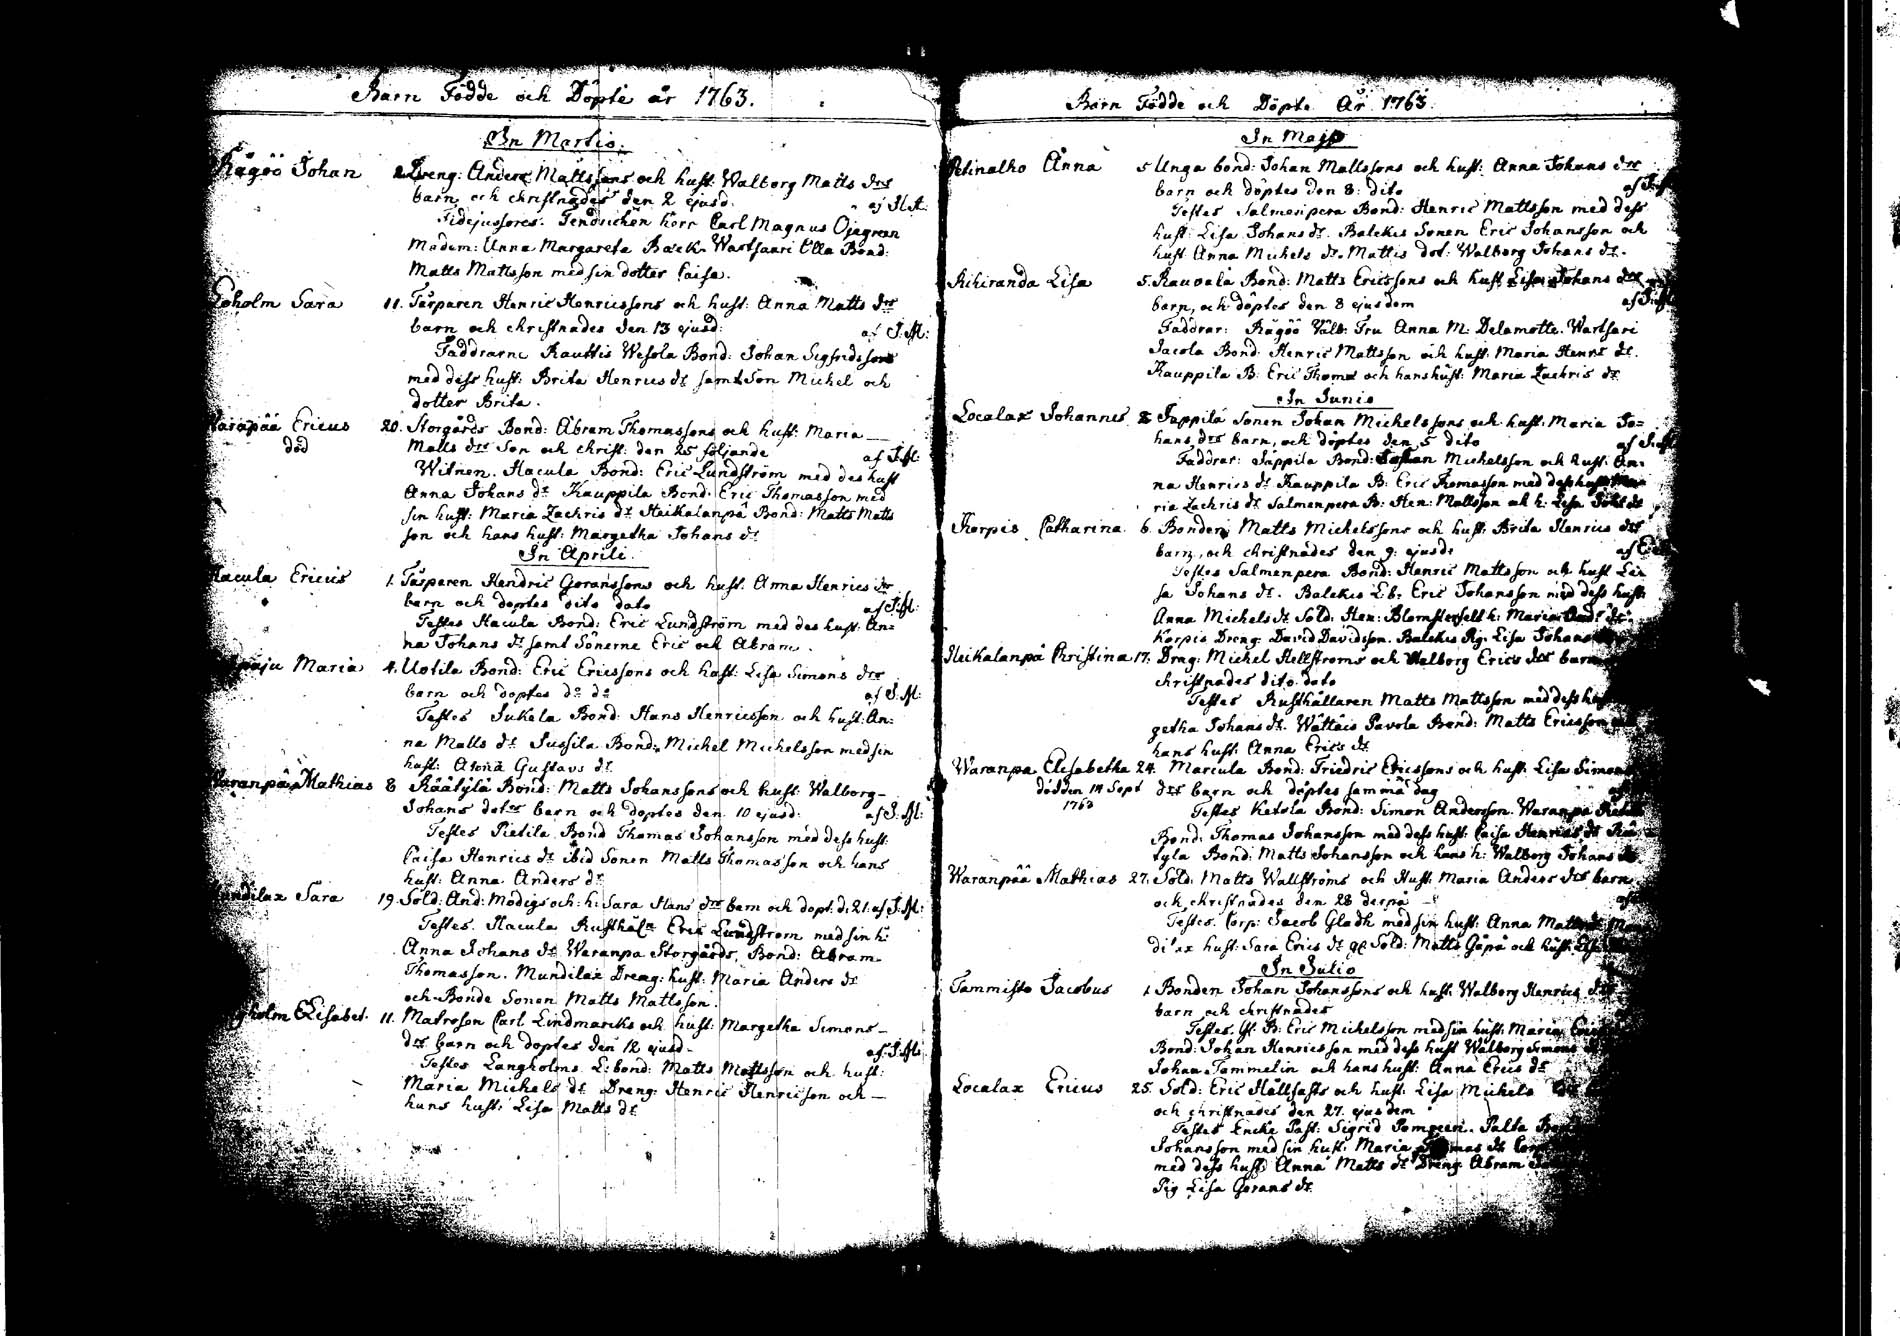 Barn Födde och Döpte år 1763.
In Martio.
Rägöö Johan 2. Dreng: Anders Mattssons och hust: Walborg Matts dtrs
barn, och christnades den 2 ejusd.
Fidejussores. Fendricken herr Carl Magnus Öjegreen
Madem: Anna Margareta Baeck. Wartsaari Olla Bond:
Matts Mattsson med sin dotter Caisa.
Sara 11. Täsparen Henric Henricssons och hust: Anna Matts dtrs
barn och christnades den 13 ejusd: af J:M:
Faddrarne Rauttis Wesola Bond: Johan Sigfredsson
med dess hust: Brita Henrics dr samt Son Michel och
dotter Brita.
Waranpää Ericus 20. Storgårds Bond: Abram Thomassons och hust: Maria
död
Matts dtrs Son och christ: den 25 följande af J:M:
Witnen. Hacula Bond: Eric Lundström med des hust
Anna Johans dr Kauppila Bond: Eric Thomasson med
sin hust: Maria Zachris dr Heikalanpä Bond: Matts Matts
son och hans hust: Margetha Johans dr
In Aprili.
Hacula Ericus 1. Täsparen Hendric Göranssons och hust. Anna Henrics dtr
barn och döptes dito dato af J:M:
Testes Hacula Bond: Eric Lundström med des hust: An=
na Johans dr samt Sönerne Eric och Abram.
Maria 4. Uotila Bond: Eric Ericssons och hust: Lisa Simons dtrs
barn och döptes do do af J:M:
Testes Jukola Bond: Hans Henricsson och hust: An:
na Matts dr Jussila Bond: Michel Michelsson med sin
hust: Anna Gustavs dr
Waranpää Mathias 8 Räätylä Bond: Matts Johanssons och hust: Walborg
Johans dotrs barn och döptes den 10 ejusd: af J:M:
Testes Pietila Bond Thomas Johansson med dess hust:
Caisa Henrics dr ibid Sonen Matts Thomasson och hans
hust: Anna Anders dr
Mundilax Sara 19. Sold: And: Modigs och h: Sara Hans dtrs barn och döpt. d: 21. af J:M:
Testes. Hacula Rusthålr Eric Lundström med sin h:
Anna Johans dr Waranpa Storgårds, Bond: Abram
Thomasson. Mundilax Dreng: hust: Maria Anders dr
och Bonde Sonen Matts Mattsson.
Elisabet. 11. Matrosen Carl Lindmarcks och hust: Margetha Simons
dtrs barn och döptes den 12 ejusd. af J:M:
Testes Langholms L: bond: Matts Mattsson och hust:
Maria Michels dr Dreng: Henric Henricsson och
hans hust: Lisa Matts dr
Barn Födde och Döpte År 1763.
In Majo
Petinalho Anna 5 Unga bond: Johan Mattssons och hust: Anna Johans dtrs
barn och döptes den 8: dito
Testes Salmenpera Bond: Henric Mattsson med dess
hust: Lisa Johans dr. Balckis Sonen Eric Johansson och
hust: Anna Michels dr. Mattis dot: Walborg Johans dr.
Rihiranda Lisa 5. Rauvala Bond: Matts Ericssons och hust: Lisa Johans dtrs
barn, och döptes den 8 ejusdem
Faddrar: Rägöö Välb. Fru Anna M: Delamotte. Wartsari
Jacola Bond: Henric Mattsson och hust: Maria Henrs dr.
Kauppila B: Eric Thoms och hans hust: Maria Zachris dr
In Junio
Localax Johannes Jappila Sonen Johan Michelssons och hust: Maria Jo=
hans dtrs barn, och döptes den 5 dito
Faddrar: Jäppila Bond: Johan Michelsson och hust: An=
na Henrics dr Kauppila B: Eric Thomasson med dess hust: Ma=
ria Zachris dr Salmenpera B: Hen: Mattsson och h: Lisa Johs dr
Korpis Catharina 6. Bonden Matts Michelssons och hust: Brita Henrics dtrs
barn, och christnades den 9: ejusd:
Testes Salmenpera Bond: Henric Mattsson och hust Li=
sa Johans dr. Balckis Lb: Eric Johansson med dess hust:
Anna Michels dr Sold: Hen: Blomsterfelt h: Maria
Korpis Dreng: David Davidsson. Balckis Pig: Lisa Johans
Heikalanpä Christina 17. Dreng: Michel Hellströms och Walborg Erics dtrs barn
christnades dito dato
Testes Rusthållaren Matts Mattsson med dess
getha Johans dr. Wättäis Pavola Bond: Matts Ericsson
hans hust: Anna Erics dr
Waranpa Elisabetha 24. Maricula Bond: Friedric Ericssons och hust: Lisa Simons
död den 14 Sept dtrs barn och döptes samma dag
1763
Testes Ketola Bond: Simon Andersson. Waranpa
Bond: Thomas Johansson med dess hust: Caisa Henrics dr Rä
tyla Bond: Matts Johansson och hans h: Walborg Johans
Waranpää Mathias 27. Sold: Matts Wallströms och Hust: Maria Anders dtrs barn
och christnades den 28 derpå
Testes. Corp: Jacob Gladh med sin hust: Anna Matts
dilax hust: Sara Erics dr Sold: Matts Gåpå och hust:
In Julio
Tammisto Jacobus 1. Bonden Johan Johanssons och hust: Walborg Henrics
barn och christnades
Testes. B: Eric Michelsson med sin hust: Maria
Bond: Johan Henricsson med dess hust Walborg Simons
Johan Tammelin och hans hust: Anna Erics dr
Localax Ericus 25. Sold: Eric Hållfasts och hust: Lisa Michels
och christnades den 27. ejusdem
Testes Encke Past: Sigrid Pomoeen. Palta
Johansson med sin hust: Maria
med dess hust: Anna Matts dr Dreng: Abram
Pig Lisa Görans dr